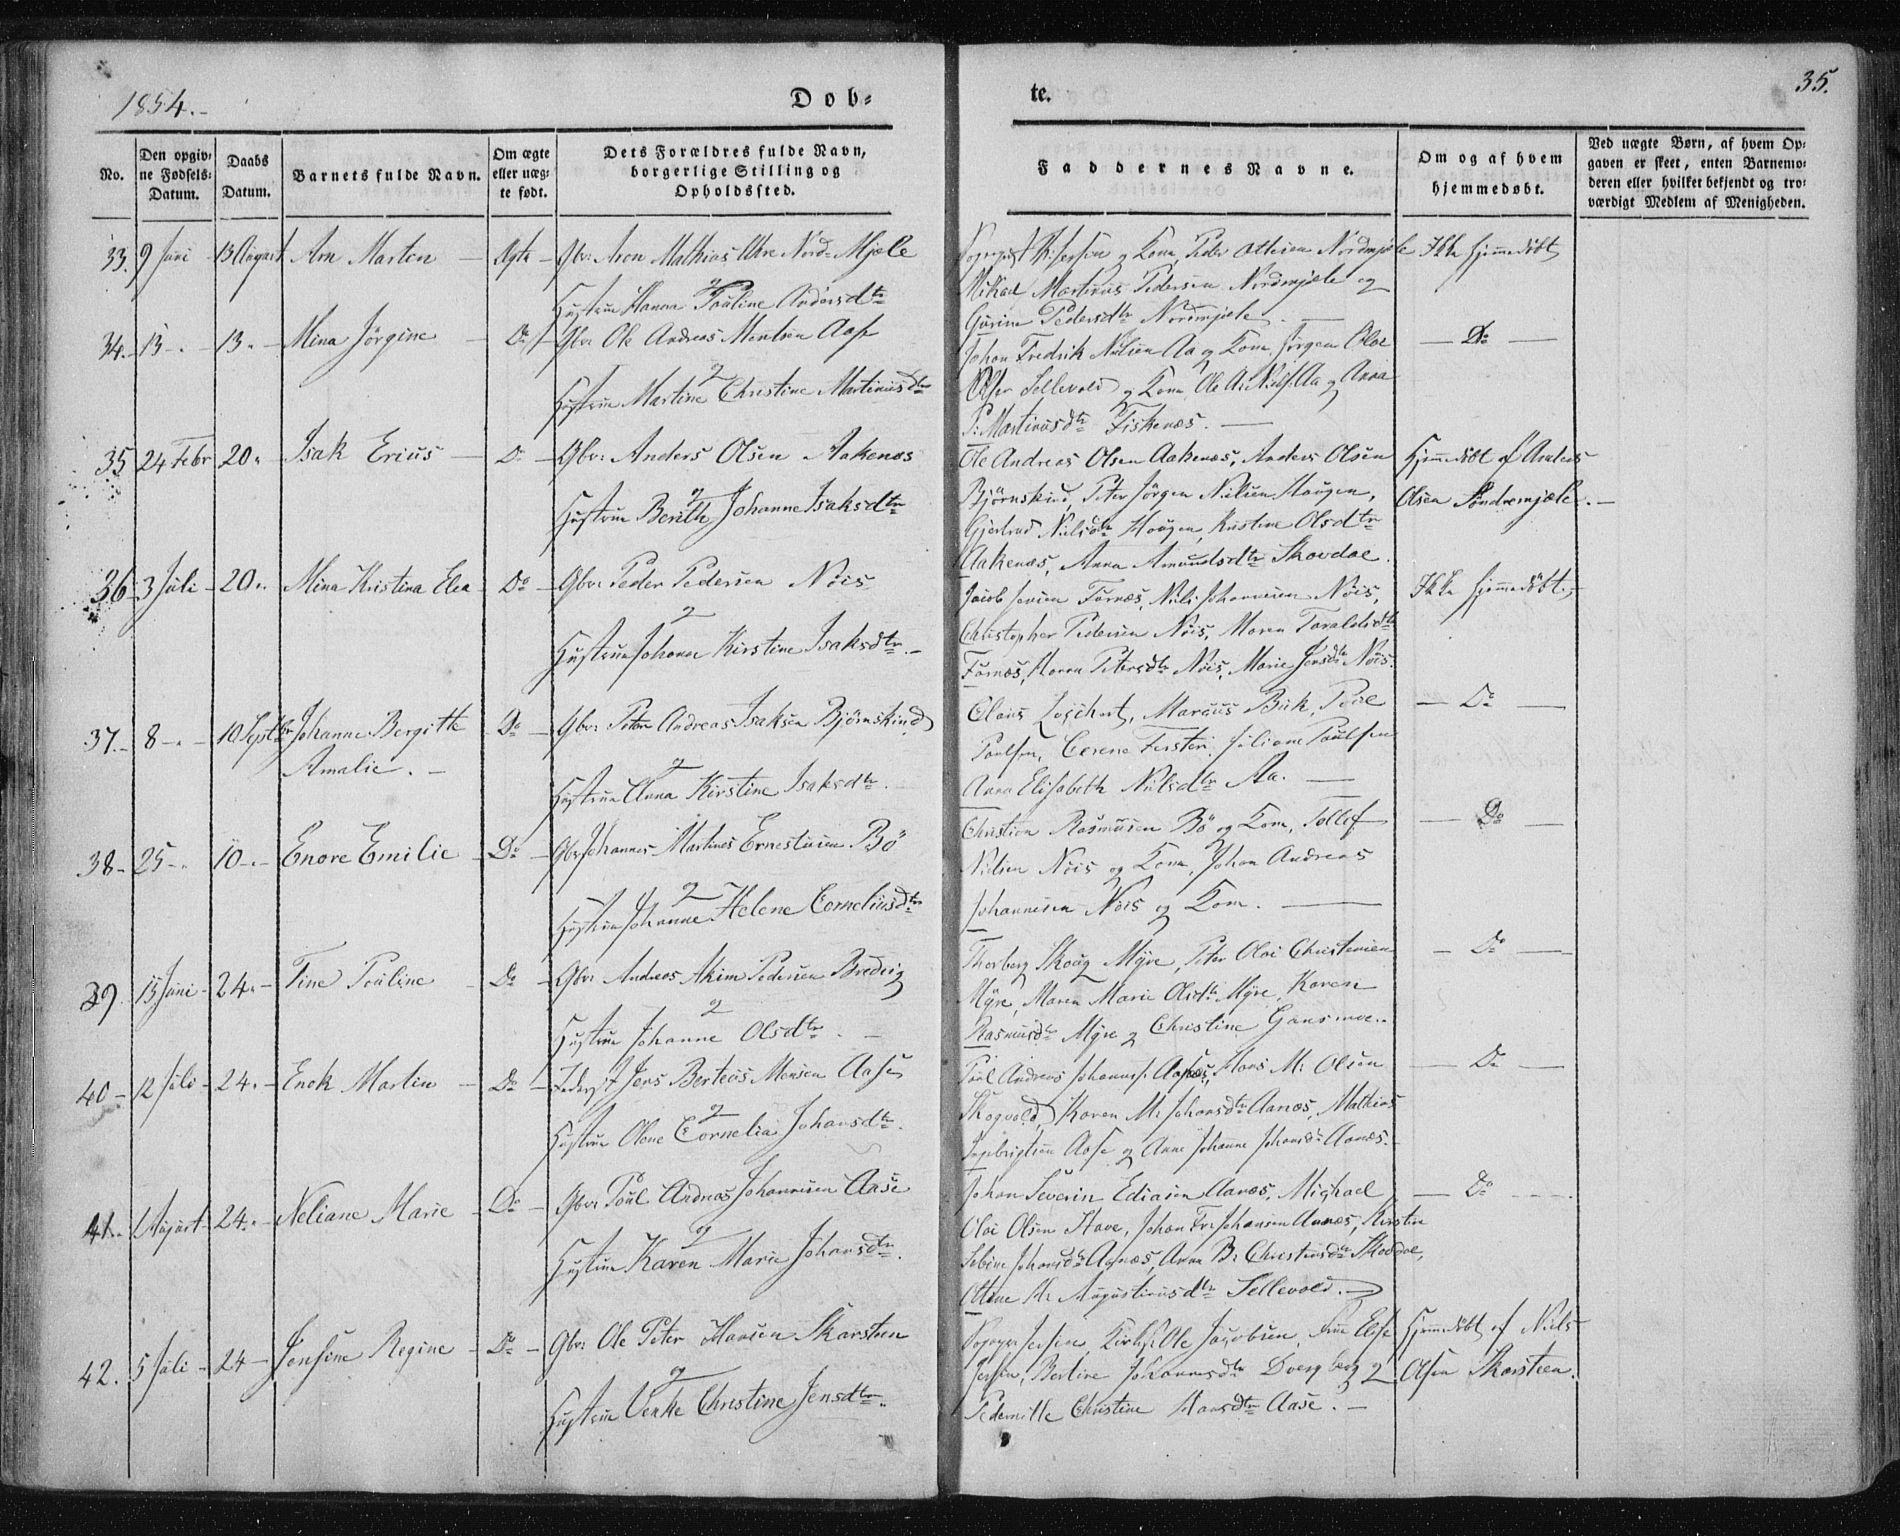 1854.
Dob-
te.
35.
No.
Den opgiv-
ne Fødsels-
Datum.
Daabs
Datum.
Barnets fulde Navn.
Om ægte
eller uæg-
te født.
Dets Forældres fulde Navn,
borgerlige Stilling og
Opholdssted.
Faddernes Navne.
Om og af hvem
hjemmedøbt.
Ved uægte Børn, af hvem Op-
gaven er skeet, enten Barnemo-
deren eller hvilket bekjendt og tro-
værdigt Medlem af Menigheden.
33. 9 Juni 13 August Arn Marten Ægte Gbr: Aron Mathias Nord-Mjele
Hustrue Hanna Pauline Andersdtr
og Kone, Peder Ottesen Nordmjele
Mikael Martinus Pedersen Nordmjele og
Gurine Pedersdtr Nordmjele.
Ikke hjemmedöbt
34. 13 - 13 - Mina Jörgine Do Gbr Ole Andreas Aase
og
Hustrue Martine Christine Martinusdtr
Johan Fredrik Nilsen Aa og Kone, Jörgen Oluf
Sellevold og Kone Ole Aa og Anna
P: Martinusdtr Fiskenæs.
Do
35 24 Febr 20. Isak Erius Do Gbr: Anders Olsen Aakenæs
og
Hustrue Berith Johanne Isaksdtr
Ole Andreas Olsen Aakenæs, Anders Olsen
Björnskind, Peter Jörgen Nielsen Haugen,
Gjertrud Nielsdtr Haugen, Kristine Olsdtr
Aakenæs, Anna Amundsdtr Skovdal.
Hjemmedöbt af Anders
Olsen Söndremjele.
36 3 Juli 20. Mina Kristina Elea Do Gbr: Peder Pedersen Nöis
og
Hustrue Johanna Kirstine Isaksdtr.
Jacob Jensen Fornæs, Nils Johannesen Nöis,
Christopher Pedersen Nöis, Maren Taraldsdtr
Fornæs, Maren Petersdtr Nöis, Marie Jensdtr Nöis.
Ikke hjemmedöbt.
37. 8 - 10 Septbr Johanna Bergitte
Amalie.
Do Gbr: Peter Andreas Isaksen Björnskind
og
Hustrue Anna Kirstine Isaksdtr.
Claus Loschart, Marcus Bick, Povel
Paulsen, Juliane Paulsen
Anna Elisabeth Nielsdtr Aa.
Do
38 25 - 10 - Enore Emilie Do Gbr Johannes Martines Ernestusen Bö
og
Hustrue Johanna Helene Corneliusdtr
Christian Rasmusen Bö og Kone, Tollef
Nielsen Nöis og Kone, Johan Andreas
Johannesen Nöis og Kone.
Do
39 15 Juni 24. Tine Pauline Do Gbr Andreas Akim Pedersen Bredvig
og
Hustrue Johanne Olsdtr.
Thorberg Skoug Myre, Peter Olai Christensen
Myre, Maren Marie Olsdtr Myre, Karen
Rasmusdtr Myre og Christine Gansmoe.
Do
40 12 Juli 24. Enok Martin Do Jens Berteus Monsen Aase
og
Hustrue Olene Cornelia Johansdtr.
Paul Andreas Johannes. Aanæs, Hans M: Olsen
Skogvold, Karen M: Johansdtr Aanæs, Mathias
Ingebrigtsen Aase og Anne Johanna Johansdtr Aanæs.
Do
41. 1 August 24. Neliane Marie Do Gbr: Paul Andreas Johannesen Aase
og
Hustrue Karen Marie Johansdtr.
Johan Severin Ediasen Aanæs, Michael
Olai Olsen Have, Johan Fr: Johansen Aanæs, Kirstine
Sebine Johansdtr Aanæs, Anna B: Christensdtr Skovdal,
M: Augustinusdtr Sellevold.
Do
42. 5 Juli 24 Jensine Regine Do Gbr: Ole Peter Hansen Skarsteen
og
Hustrue Venke Christine Jensdtr.
Jersin, Kirkes. Ole Jacobsen, Elise
Jersin, Berline Johannesdtr Dvergberg og
Pedernille Christine Hansdtr Aase.
Hjemmedöbt af Niels
Olsen Skarsteen.